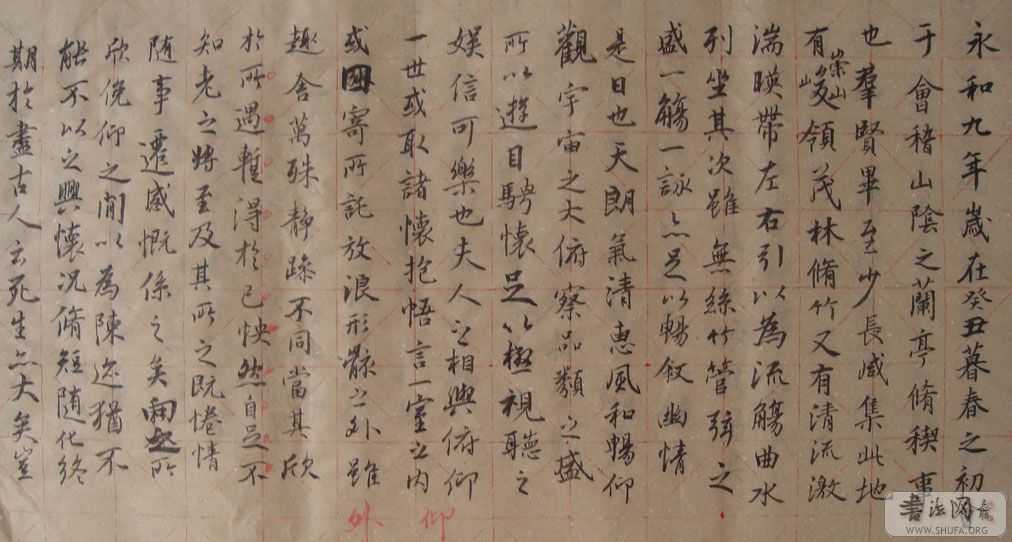 永和九年歲在癸丑暮春之初會
于會稽山陰之蘭亭脩稧事
也羣賢畢至少長咸集此地
有崇山峻領茂林脩竹又有清流激
湍暎帶左右引以為流觴曲水
列坐其次雖無絲竹管弦之
盛一觴一詠亦足以暢叙幽情
是日也天朗氣清惠風和暢仰
觀宇宙之大俯察品類之盛
所以遊目騁懷足以極視聽之
娛信可樂也夫人之相與俯仰
仰
一世或取諸懷抱悟言一室之內
或因寄所託放浪形骸之外雖
外
趣舍萬殊靜躁不同當其欣
於所遇暫得於己怏然自足不
知老之將至及其所之既惓情
随事遷感慨係之矣向之所
欣俛仰之閒以為陳迹猶不
能不以之興懷況脩短随化終
期於盡古人云死生亦大矣豈
書法网
WWW.SHUFA.ORG